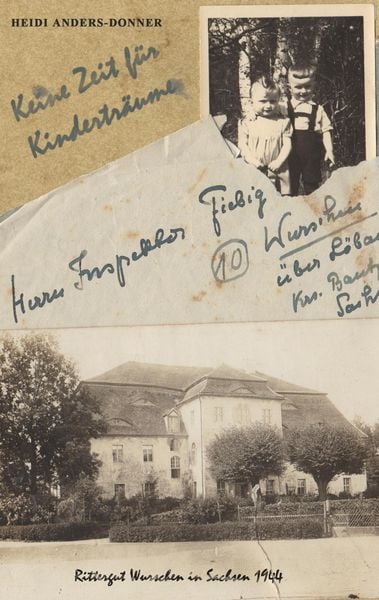 HEIDI ANDERS-DONNER
Keine Zeit für
Kinderträume
Herrn Inspektor Fiebig
(10) Wurschen
über Löbau
Krs. Bautz
Sachs
Rittergut Wurschen in Sachsen 1944